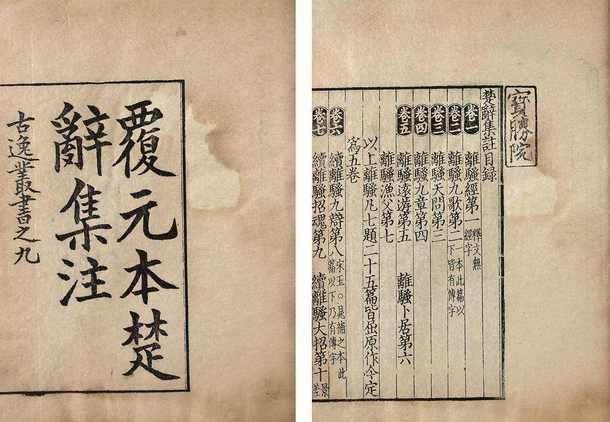 覆元本楚
辭集注
古逸叢書之九
寶勝院
楚辭集註目録
卷一 離騷經第一 釋文無經字
卷二 離騷九歌第二 本此篇以下皆有傳字
卷三 離騷天問第三
卷四 離騷九章第四
卷五 離騷遠遊第五 離騷卜居第六
離騷漁父第七
以上離騷凡七題二十五篇皆屈原作今定
爲五卷
卷六 續離騷九辯第八 宋玉○晁補之本此篇以下乃有傳字
卷七 續離騷招魂第九 續離騷大招第十 景差